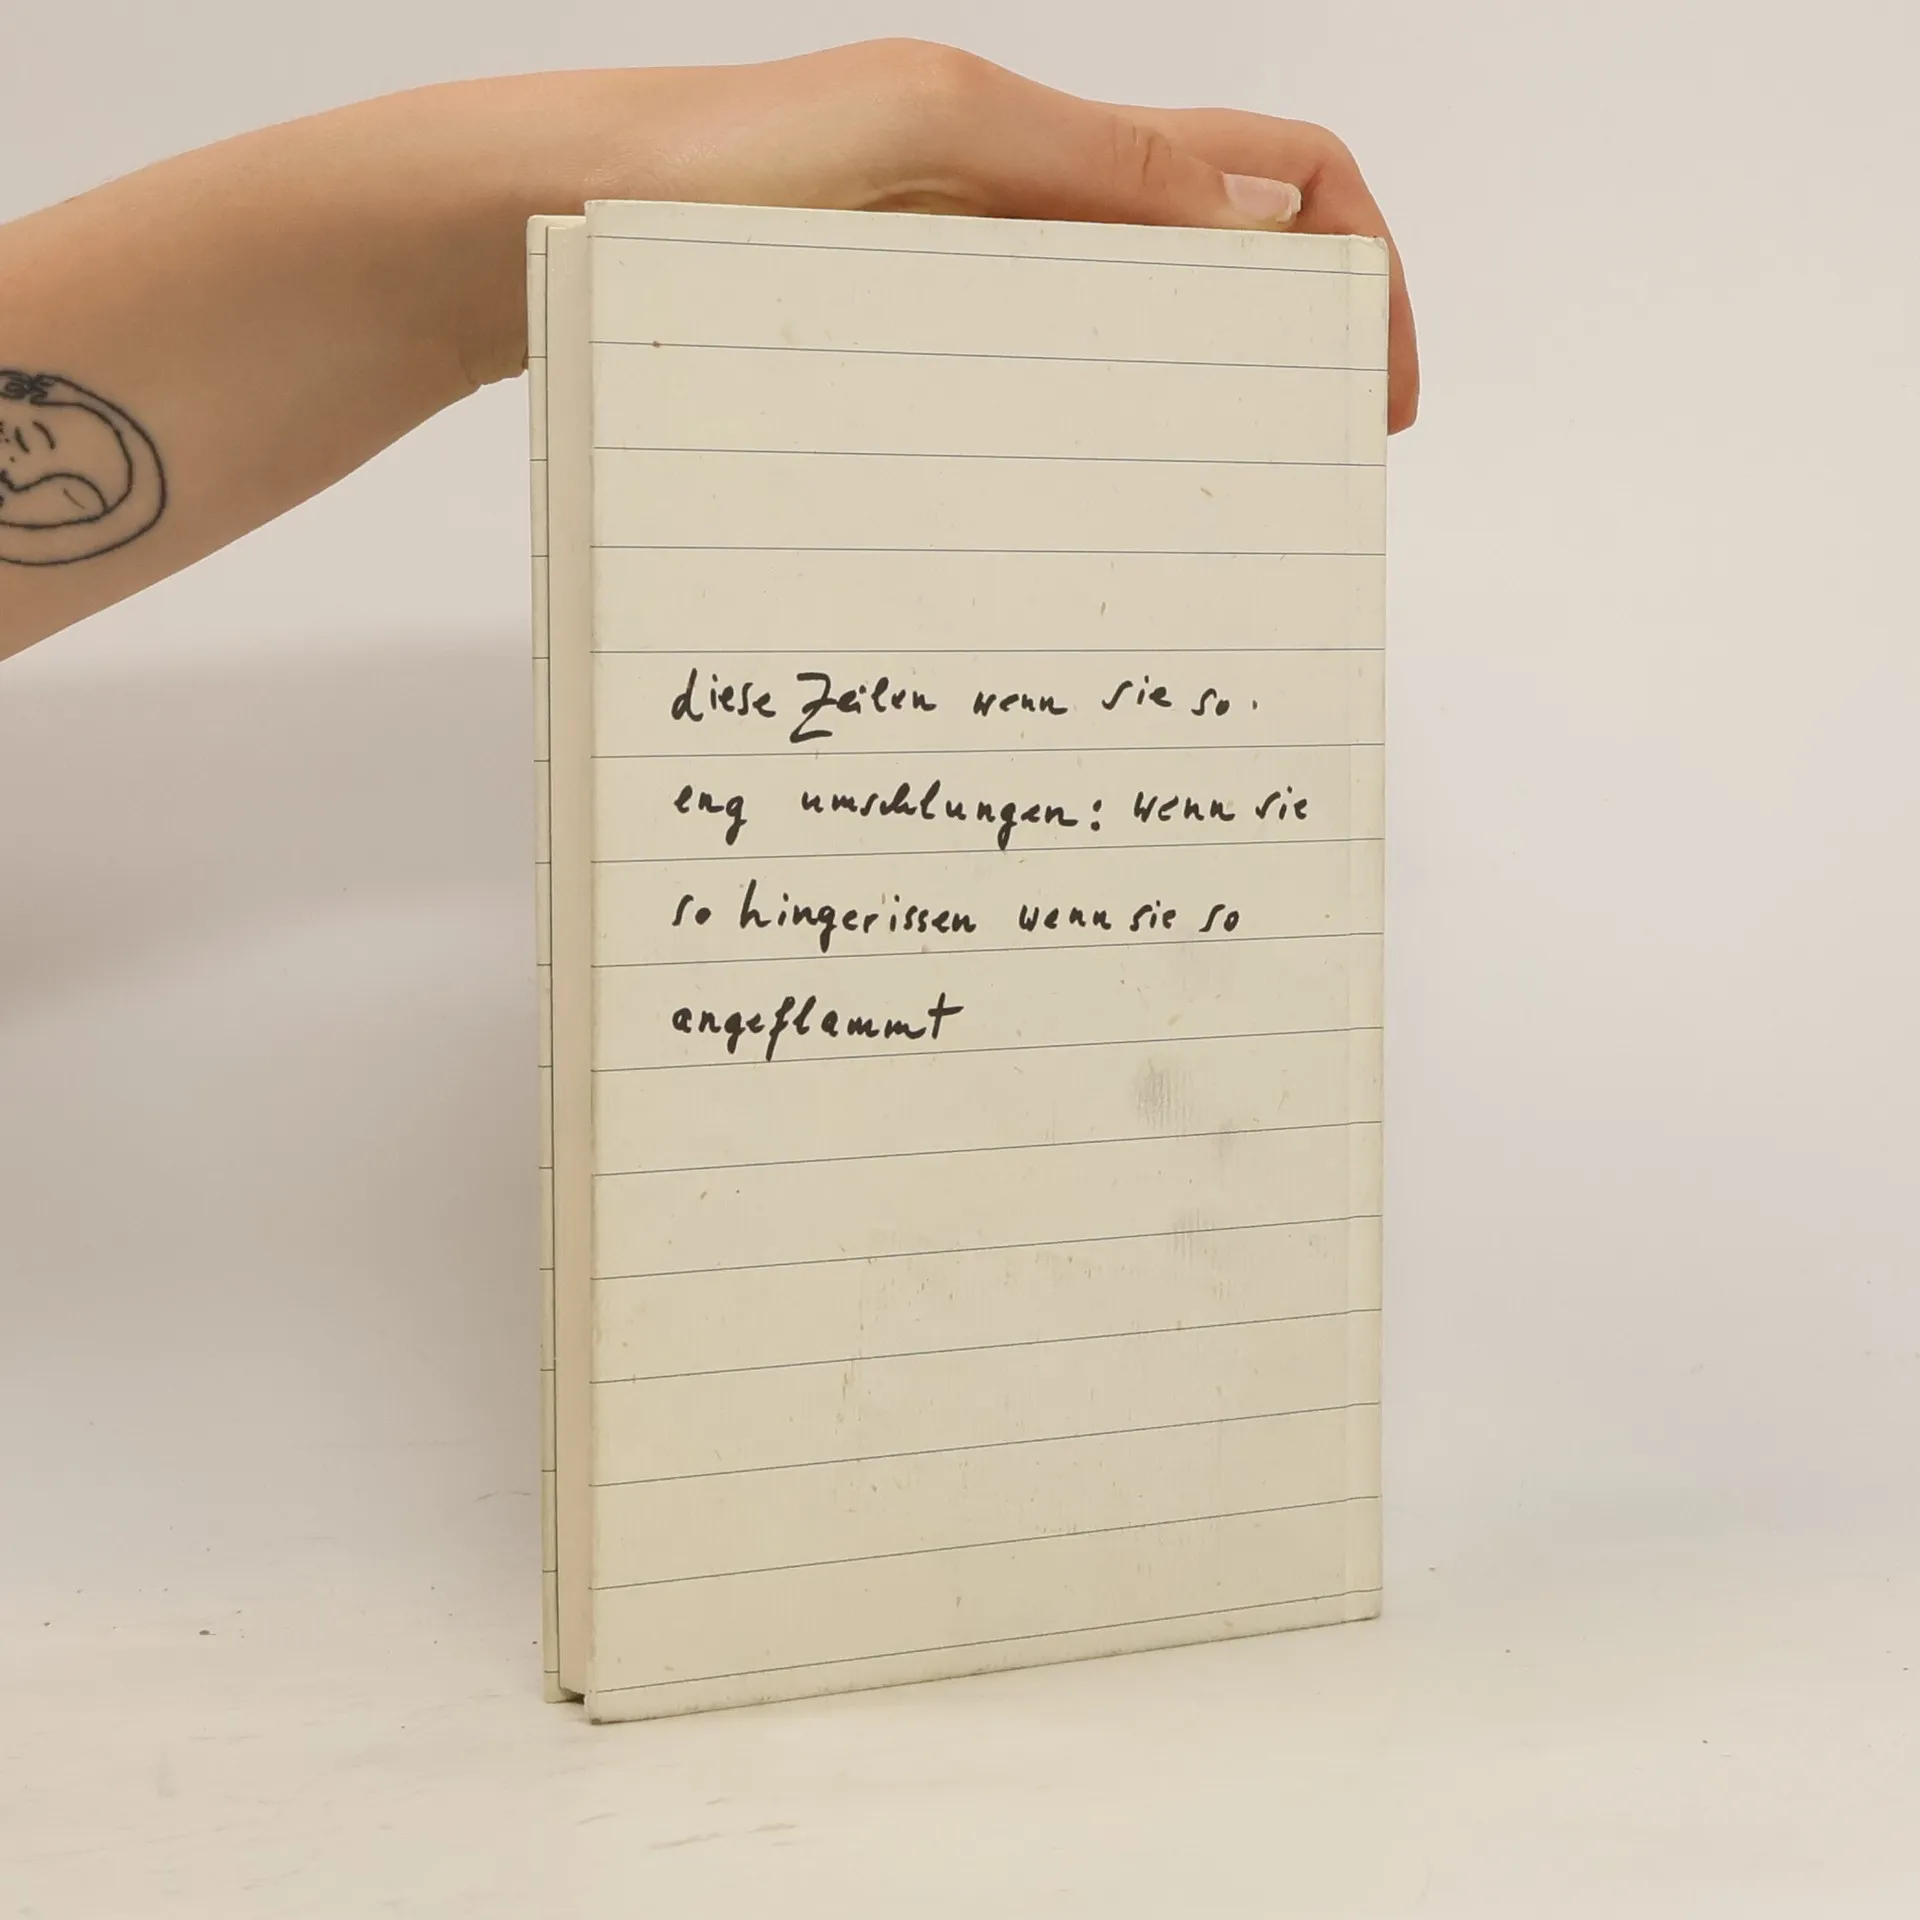 diese Zeilen wenn sie so.
eng umschlungen: wenn sie
so hingerissen wenn sie so
angeflammt